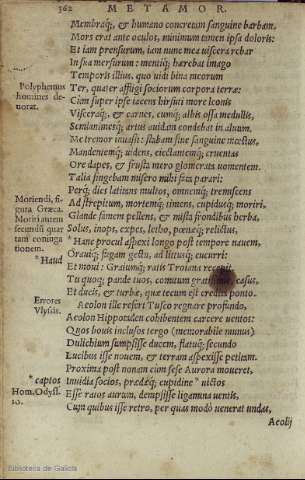 362 METAMOR.
Membraq́;, & humano concretam sanguine barbam.
Mors erat ante oculos, minimum tamen ipsa doloris:
Et iam prensurum, iam nunc mea viscera rebar
In sua mersurum: mentiq́; hærebat imago
Temporis illius, quo vidi bina meorum
Polyphemus
homines de-
uorat.
Ter, quater affligi sociorum corpora terræ:
Cùm super ipse iacens hirsuti more leonis
Visceraq́;, & carnes, cumq́; albis ossa medullis,
Semianimesq́; artus auidam condebat in aluum.
Me tremor inuasit: stabam sine sanguine mœstus,
Mandentemq́; videns, eiectantemq́; cruentas
Ore dapes, & frusta mero glomerata vomentem.
Talia fingebam misero mihi fata parari:
Perq́; dies latitans multos, omnemq́; tremiscens
Moriendi, fi-
gura Græca.
Moriri autem
secundũ quar
tam coniuga
tionem.
Ad strepitum, mortemq́; timens, cupidusq́; moriri,
Glande famem pellens, & mista frondibus herba,
Solus, inops, expes, letho, pœnæq́; relictus,
* Hanc procul aspexi longo post tempore nauem,
* Haud
Orauiq́; fugam gestu, ad littusq́; cucurri:
Et moui: Graiumq́; ratis Troiana recepit.
Tu quoq; pande tuos, comitum gratissime, casus,
Et ducis, & turbæ, quæ tecum est credita ponto.
Errores
Vlyssis.
Aeolon ille refert Tusco regnare profundo,
Aeolon Hippotaden cohibentem carcere ventos:
Quos bouis inclusos tergo (memorabile munus)
Dulichium sumpsisse ducem, flatuq́; secundo
Lucibus isse nouem, & terram aspexisse petitam.
Proxima post nonam cùm sese Aurora moueret,
* captos
Hom. Odyss.
10.
Inuidia socios, prædæq́; cupidine * victos
Esse ratos aurum, dempsisse ligamina ventis,
Cum quibus isse retro, per quas modò venerat vndas,
Aeolij
Biblioteca de Galicia